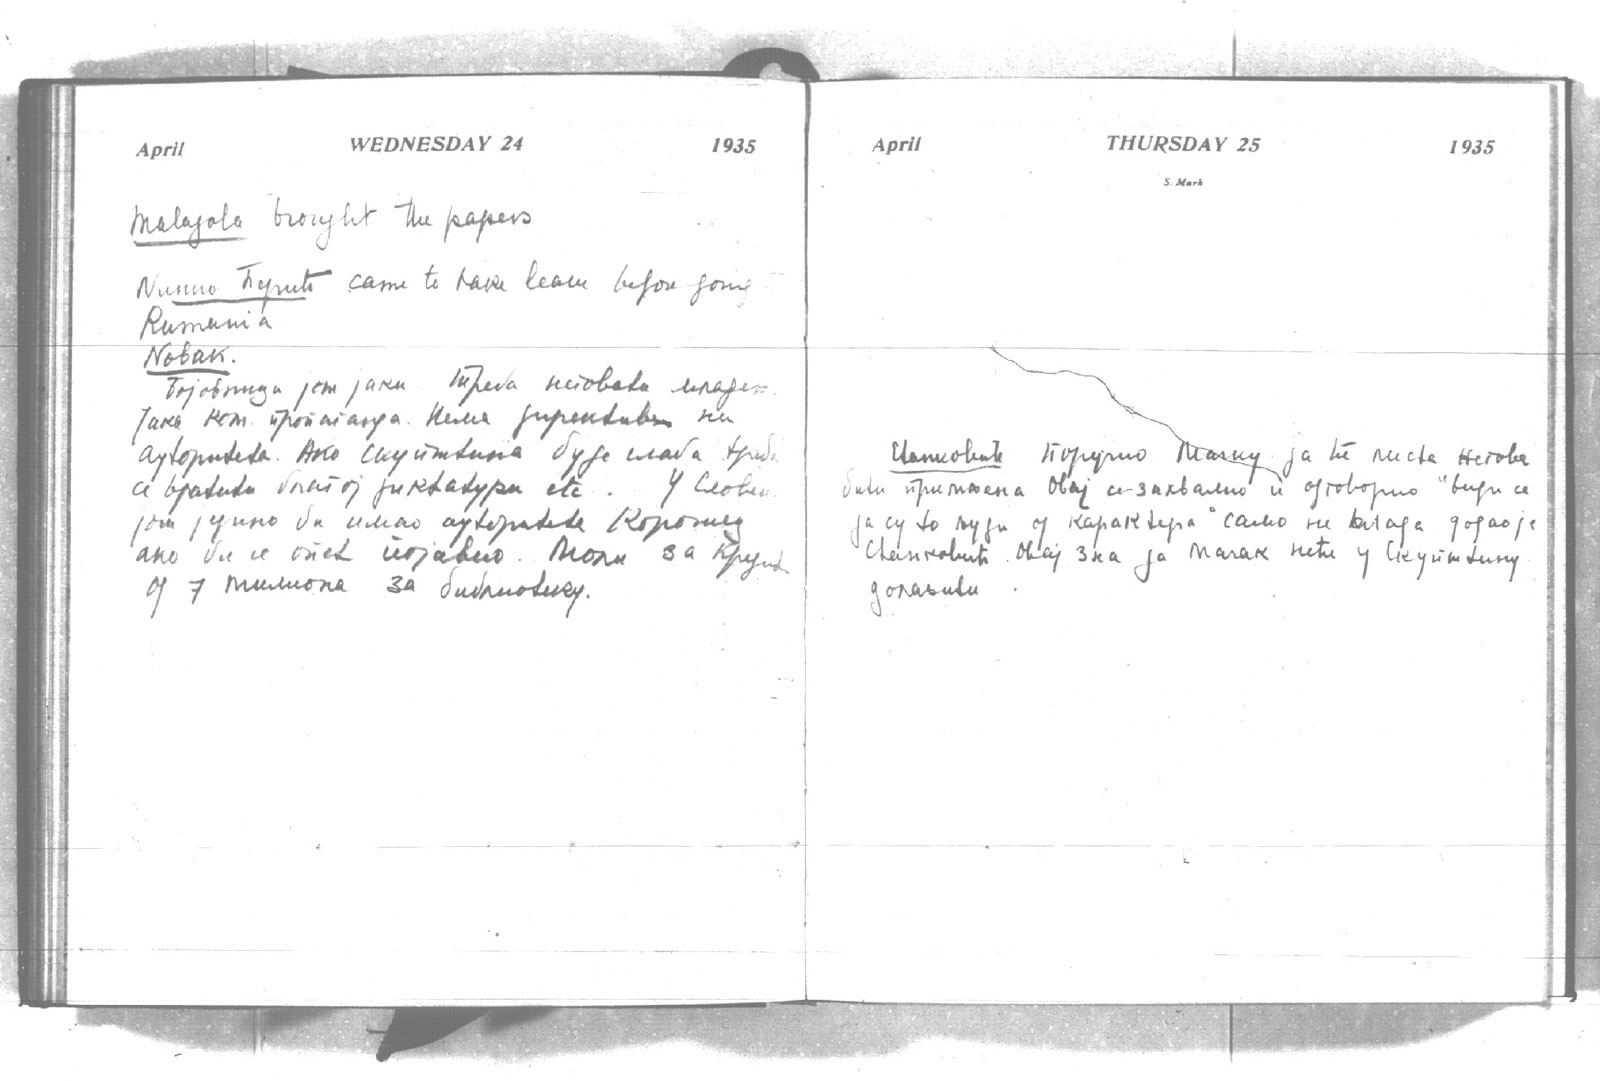 April WEDNESDAY 24 1935
Malagola brought the papers
Нинко Перић came to take leave before going
Rumania
Новак.
јот јаки. Треба неговати младеж.
Јака ком. пропаганда. Нема директива ни
ауторитета. Ако скупштина буде слаба треба
се вратити благој диктатури etc. У Словен.
јот једино би имао ауторитета Корошец
ако би се опет појавио. Моли за кредит
од 7 милиона за библиотеку.
April THURSDAY 25 1935
S. Mark
Станковић поручио Мачку да ће листа његова
бити примљена Овај се захвалио и одговорио "види се
да су то људи од карактера" само не влада додао је
Станковић. Овај зна да Мачак неће у Скупштину
долазити.